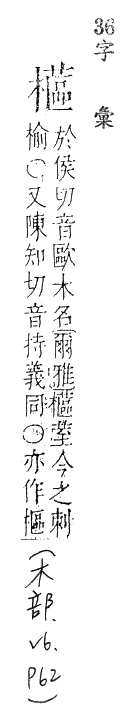 36字彙
櫙
於侯切音歐木名爾雅櫙荎今之刺
榆○又陳知切音持義同○亦作樞(木部.v6.P62)